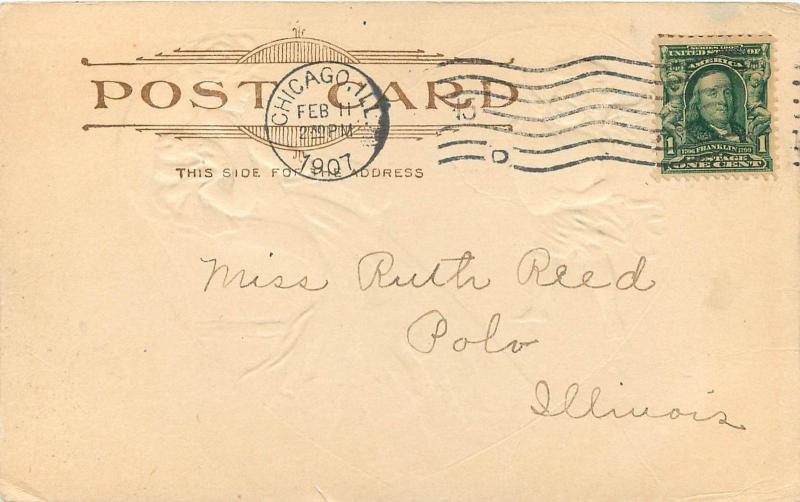 POST CARD
CHICAGO, ILL.
FEB 11
1907
THIS SIDE FOR THE ADDRESS
D
SERIES 1902
UNITED STATES OF
AMERICA
1 1
1706 FRANKLIN 1790
POSTAGE
ONE CENT
Miss Ruth Reed
Polo
Illinois